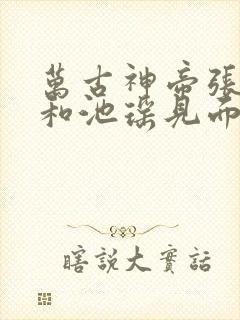 萬古神帝張
和池瑤見面
瞎說大實話